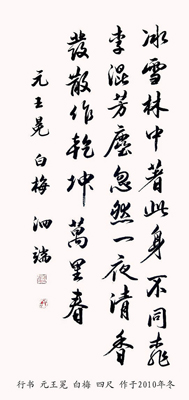 冰雪林中著此身不同桃
李混芳塵忽然一夜清香
發散作乾坤萬里春
元王冕 白梅 泗端
行书 元王冕 白梅 四尺 作于2010年冬